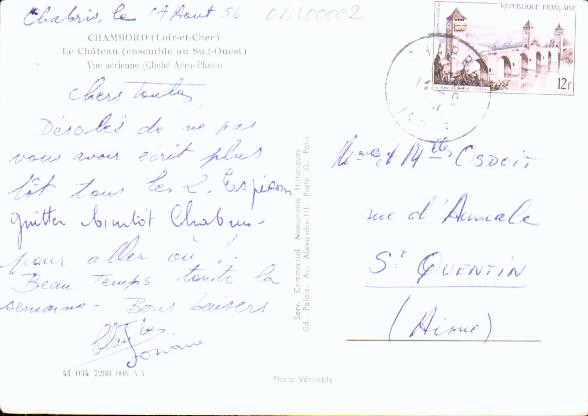 Chabris, le 17 Aout 56
04100002
CHAMBORD (Loir-et-Cher)
Le Château (ensemble au Sud-Ouest)
Vue aérienne (Cliché Aéro-Photo)
Chers toutes,
Désolés de ne pas
vous avoir écrit plus
tôt tous les 2. Espérons
quitter bientôt Chabris -
pour aller où !!
Beau Temps toute la
semaine - Bons baisers
41 034 7288 008 VA
Photo Véritable
Serv. Commercial Monuments Historiques
Gd Palais, Av. Alexandre-III, Porte G. Paris
REPUBLIQUE FRANÇAISE
12F
Mmes et Melles
rue d'Aumale
St QUENTIN
(Aisne)